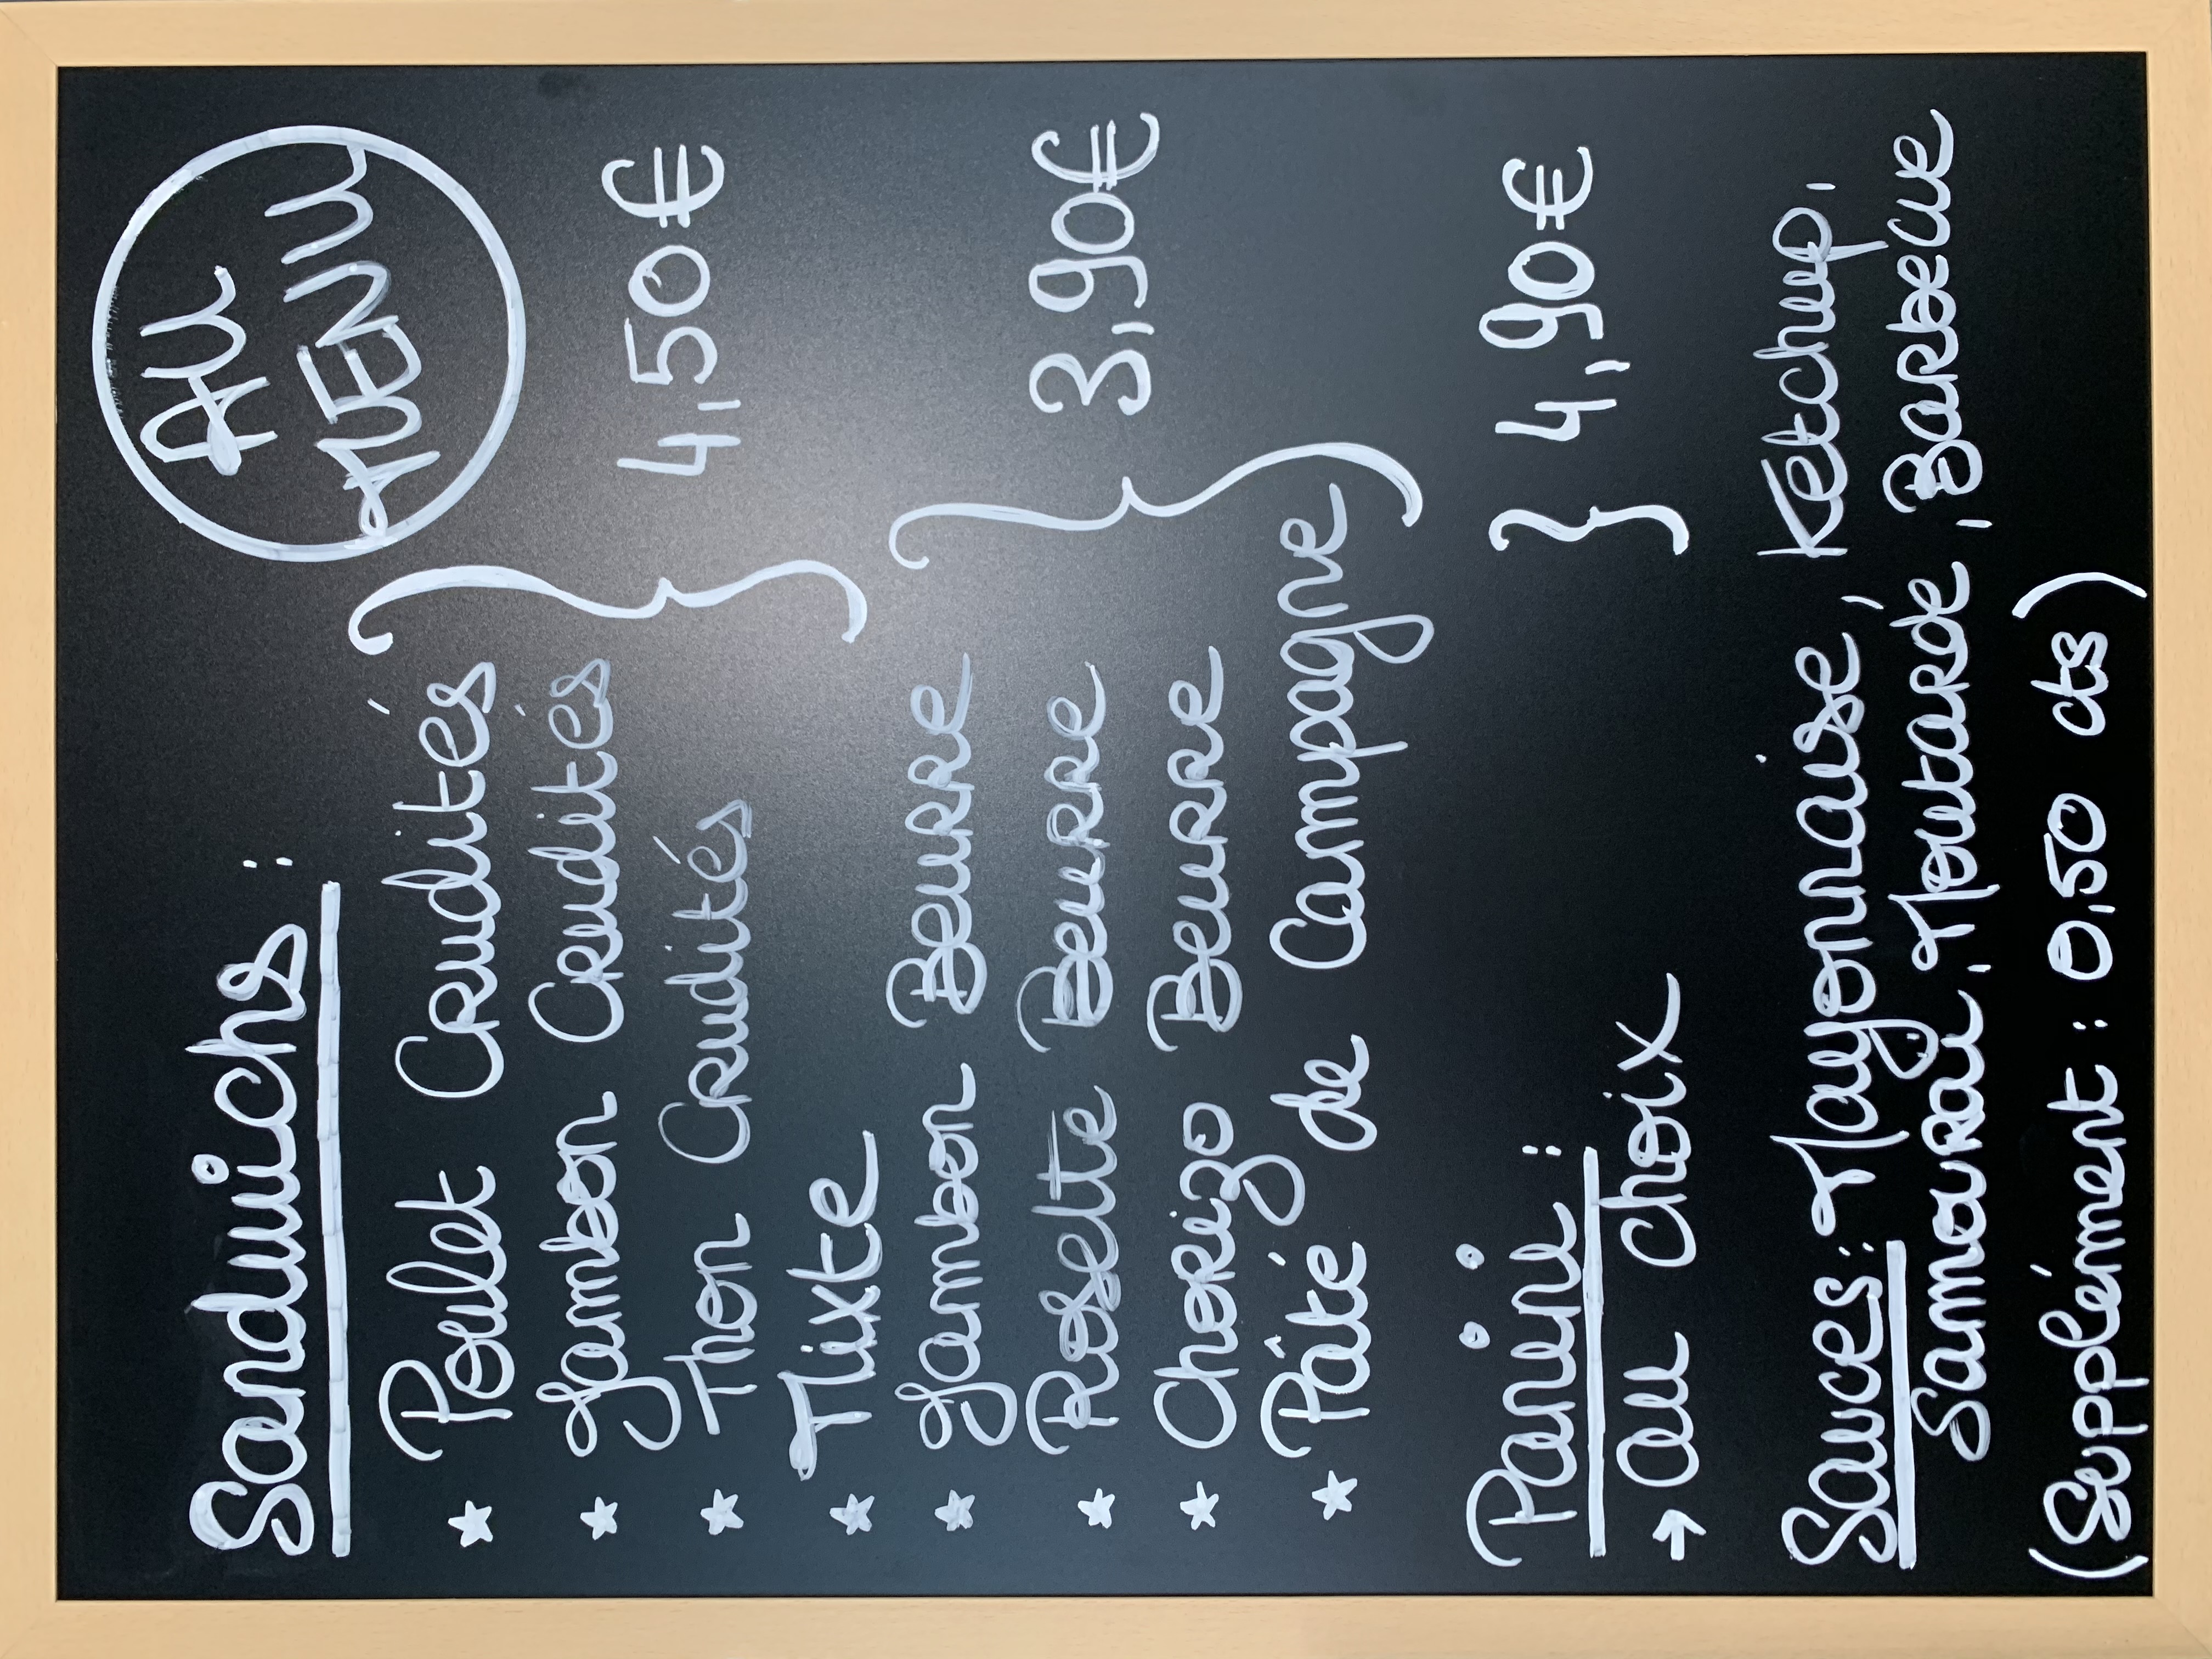 AU
MENU
Sandwichs :
Poulet Crudités
Jambon Crudités
Thon Crudités
Mixte
} 4,50€
Jambon Beurre
Rosette Beurre
Chorizo Beurre
Pâté de Campagne
} 3,90€
Panini :
→ au choix
} 4,90€
Sauces : Mayonnaise, Ketchup,
Samouraï, Moutarde, Barbecue
(Supplément : 0,50 cts)